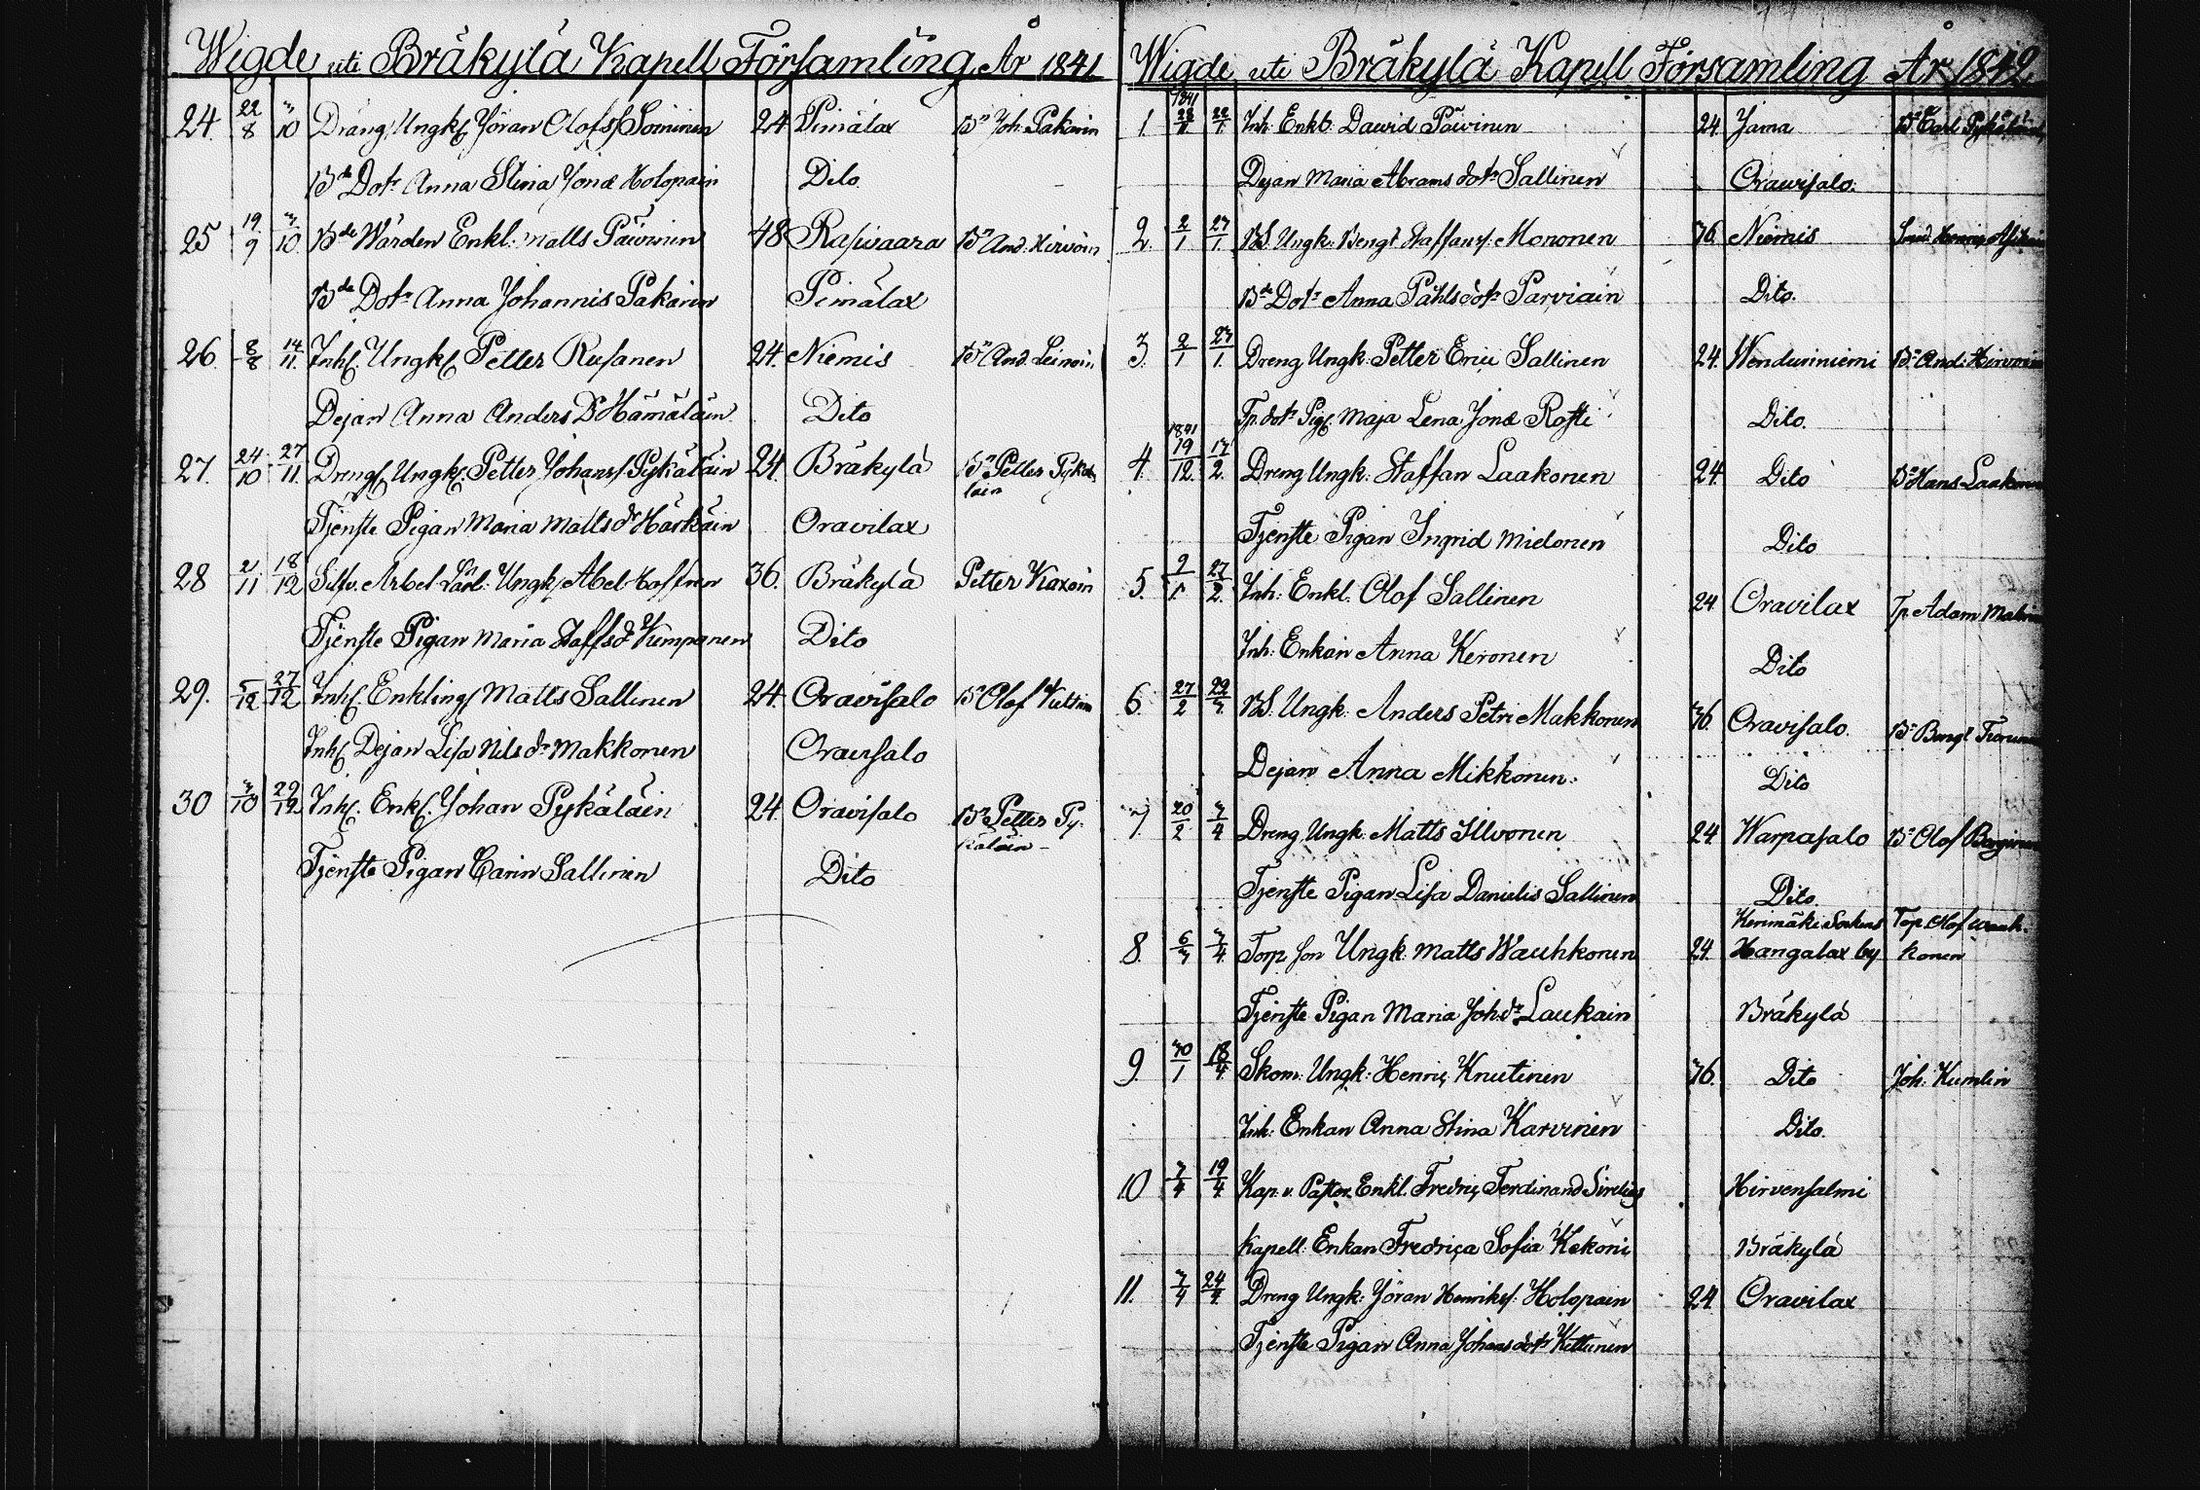 Wigde uti Bräkylä Kapell Församling År 1841
24. 22/8 3/10 Dräng. Ungk. Jöran Olofss Soininen 24 Pimälax Bn Joh. Pakarin
Bde Dotr Anna Stina Jonæ Holopain Dito
25 19/9 3/10 Bde Wärden Enkl. Matts Päivinen 48 Rasivaara Bn And. Hirvoin
Bde Dotr Anna Johannis Pakarin Pimälax
26. 8/8 14/11. Inh. Ungk. Petter Rusanen 24. Niemis Bn And. Leinoin
Dejan Anna Anders Dr Hämäläin Dito
27. 24/10 27/11. Dreng. Ungk. Petter Johanss Pykäläin 24. Bräkylä Bn Petter Pykä
läin
Tjenste Pigan Maria Matts dr Härkäin Oravilax
28 2/11 18/12 Ungk. Abel Hoffren 36. Bräkylä Petter Kaxoin
Tjenste Pigan Maria Staffs dr Kumpanen Dito
29. 5/12 27/12 Inh. Enkling Matts Sallinen 24. Oravisalo Bn Olof
Inh. Dejan Lisa Nils dr Makkonen Oravisalo
30 3/10 29/12 Inh. Enk. Johan Pykäläin 24. Oravisalo Bn Petter Py-
käläin
Tjenste Pigan Carin Sallinen Dito
Wigde uti Bräkylä Kapell Församling År 1842
1841
1 22/1. Inh. Enkl. Dawid Päivinen 24. Jama Bn Carl Pykäläin
Dejan Maria Abrams dotr Sallinen Oravisalo.
2. 2/1 27/1. BS. Ungk. Bengt Staffanss. Mononen 36. Niemis
Bde Dotr Anna Påhls dotr Parviain Dito.
3. 2/1 27/1. Dreng Ungk. Petter Erici Sallinen 24. Wenduriniemi Bn And. Hirvoin
Tp. dotr Pig. Maja Lena Jonæ Rosti Dito.
1841
4. 19/12. 17/2. Dreng Ungk. Staffan Laakonen 24. Dito Bn Hans Laakonen
Tjenste Pigan Ingrid Mielonen Dito
5. 2/1. 27/2. Inh: Enkl. Olof Sallinen 24 Oravilax Tp. Adam
Inh: Enkan Anna Keronen Dito
6. 27/2 29/3. BS. Ungk: Anders Petri Makkonen 36. Oravisalo. Bn Bengt
Dejan Anna Mikkonen. Dito
7. 20/2 3/4 Dreng Ungk. Matts Illvonen 24 Warpasalo Bn Olof
Tjenste Pigan Lisa Danielis Sallinen Dito.
8. 6/3 3/4. Torp. son Ungk. Matts Wauhkonen 24. Kerimäki Sockens Torp. Olof Wauh-
Hangalax by konen
Tjenste Pigan Maria Joh. dr Laukain Bräkylä
9. 30/1 18/4. Skom: Ungk: Henric Knutinen 36. Dito Joh: Kumlin
Inh: Enkan Anna Stina Karvinen Dito.
10 3/4 19/4 Kap. v. Pastor. Enkl. Fredric Ferdinand Sirelius Hirvensalmi
Kapell. Enkan Fredrica Sofia Kekoni Bräkylä
11. 3/4 24/4. Dreng Ungk: Jöran Henrikss. Holopain 24 Oravilax
Tjenste Pigan Anna Johans dotr Kettunen